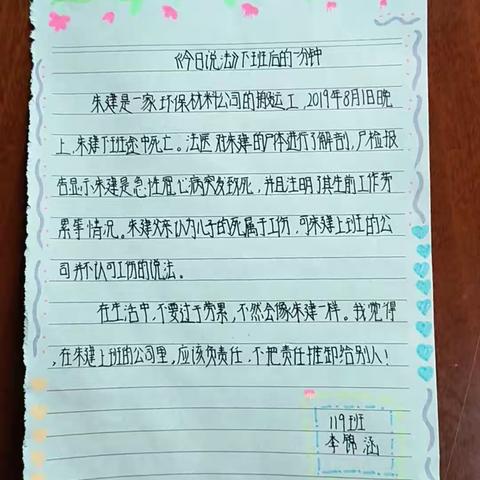 《今日说法》下班后的一分钟
朱建是一家环保材料公司的搬运工，2019年8月1日晚
上，朱建下班途中死亡。法医对朱建的尸体进行了解剖，尸检报
告显示朱建是急性冠心病突发致死，并且注明了其生前工作劳
累等情况。朱建父亲认为儿子的死属于工伤，可朱建上班的公
司并不认可工伤的说法。
在生活中，不要过于劳累，不然会像朱建一样。我觉得
，在朱建上班的公司里，应该负责任，不把责任推卸给别人！
119班
李锦涵